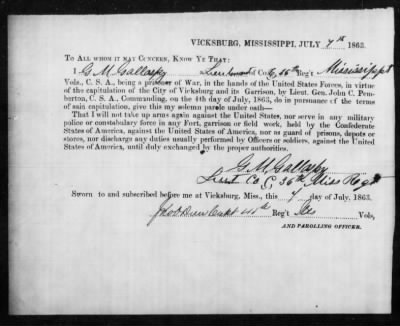 VICKSBURG, MISSISSIPPI, JULY 7th 1863.
TO ALL WHOM IT MAY CONCERN, KNOW YE THAT:
I G. M. Gallaspy Lieutenant of Co. G, 36th Reg't Mississippi
Vols., C. S. A., being a prisoner of War, in the hands of the United States Forces, in virtue
of the capitulation of the City of Vicksburg and its Garrison, by Lieut. Gen. John C. Pem-
berton, C. S. A., Commanding, on the 4th day of July, 1863, do in pursuance of the terms
of said capitulation, give this my solemn parole under oath—
That I will not take up arms again against the United States, nor serve in any military
police or constabulary force in any Fort, garrison or field work, held by the Confederate
States of America, against the United States of America, nor as guard of prisons, depots or
stores, nor discharge any duties usually performed by Officers or soldiers, against the United
States of America, until duly exchanged by the proper authorities.
G. M. Gallaspy
Lieut Co G, 36th Miss Regt
Sworn to and subscribed before me at Vicksburg, Miss., this 7 day of July, 1863.
Capt Reg't Ills Vols,
AND PAROLLING OFFICER.